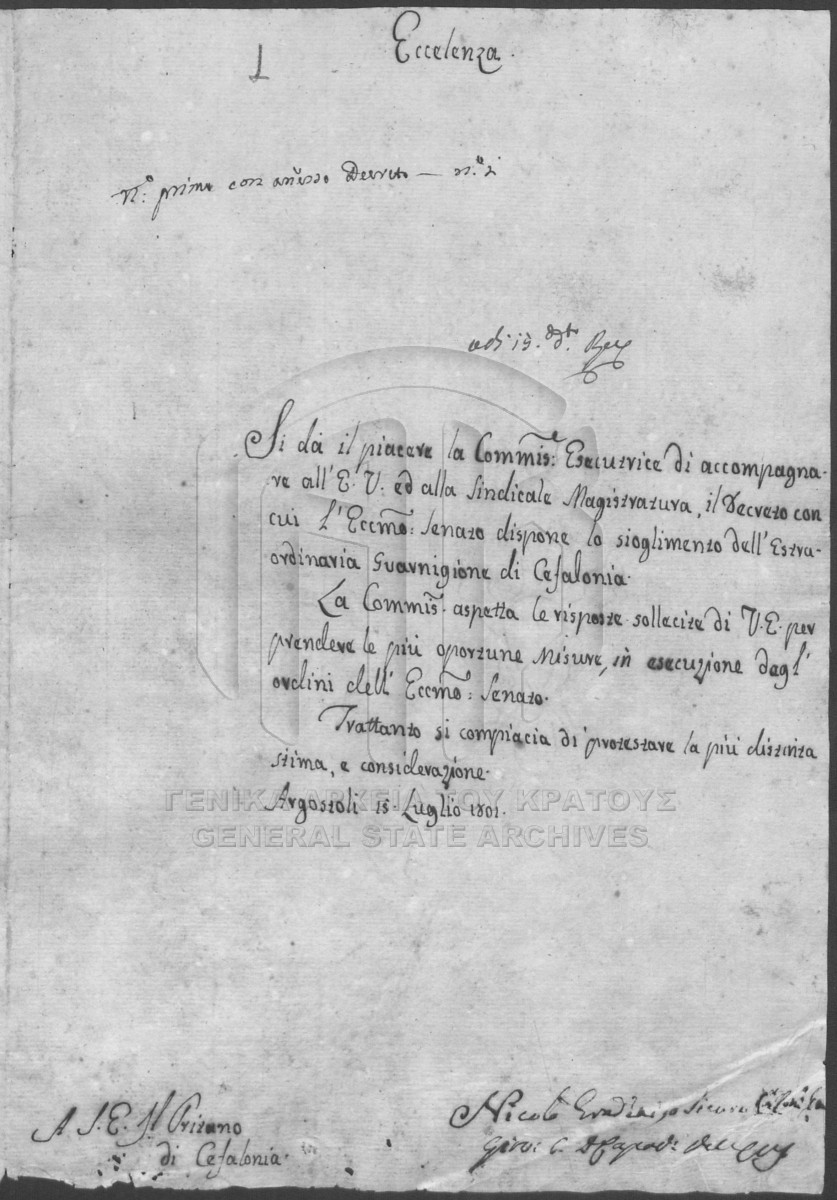 Eccelenza.
1
N.º primo con añesso Decreto — n.º 1
adi 15. dt.º Rx
Si dà il piacere la Commis:e Esecutrice di accompagna-
re all'E. V. ed alla Sindicale Magistratura, il Decreto con
cui l'Eccmo: Senato dispone lo sioglimento dell'Estra-
ordinaria Guarnigione di Cefalonia.
La Commis. aspetta le risposte sollecite di V. E. per
prendere le più oportune Misure, in esecuzione degl'
ordini dell' Eccmo: Senato.
Trattanto si compiacia di protestare la più distinta
stima, e considerazione.
Argostoli 15. Luglio 1801.
ΓΕΝΙΚΑ ΑΡΧΕΙΑ ΤΟΥ ΚΡΑΤΟΥΣ
GENERAL STATE ARCHIVES
A S. E. Il Pritano
di Cefalonia.
Nicolò Gradinigo Sicuro
Giov: